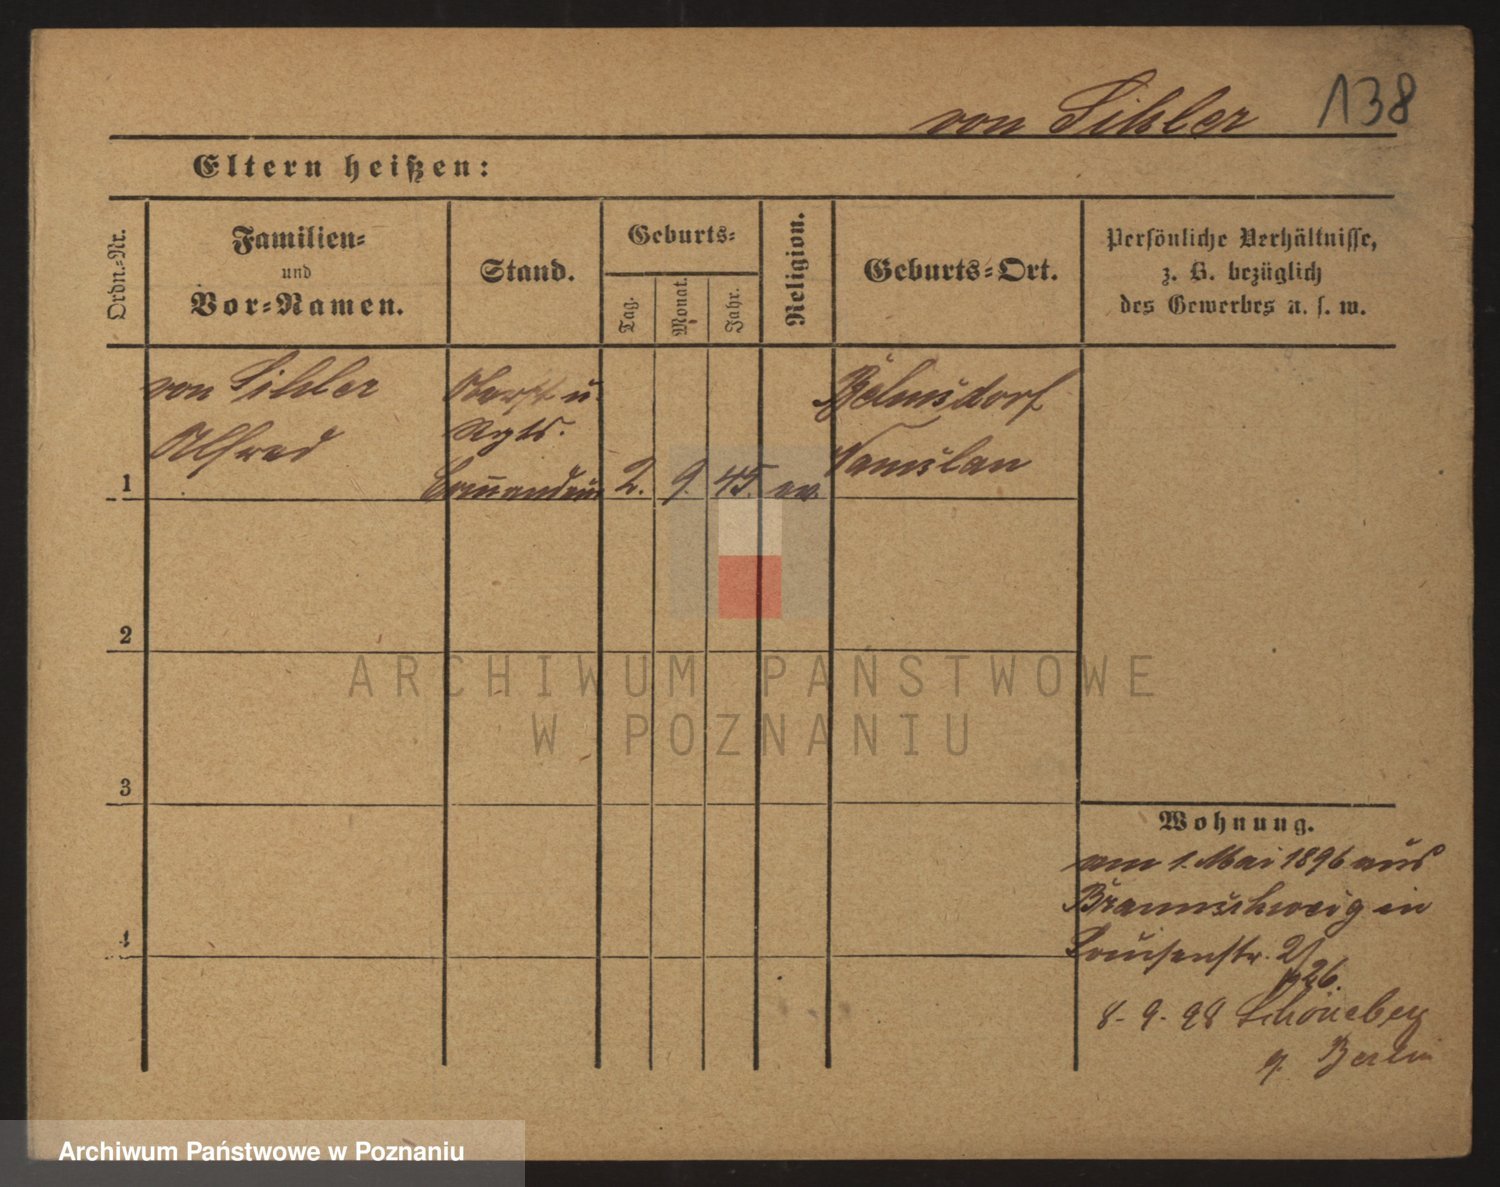 von Sihler 138
Eltern heißen:
Ordn.-Nr.
Familien-
und
Vor-Namen.
Stand.
Geburts-
Tag.
Monat.
Jahr.
Religion.
Geburts-Ort.
Persönliche Verhältnisse,
z. B. bezüglich
des Gewerbes u. s. w.
von Sihler
Alfred
Oberst u
Rgts.
1
2. 9. 45. ev.
Namslau
2
3
4
Wohnung.
am 1. Mai 1896 aus
Braunschweig in
Louisenstr.
8-9-98 Schöneberg
Berlin
ARCHIWUM PAŃSTWOWE
W POZNANIU
Archiwum Państwowe w Poznaniu